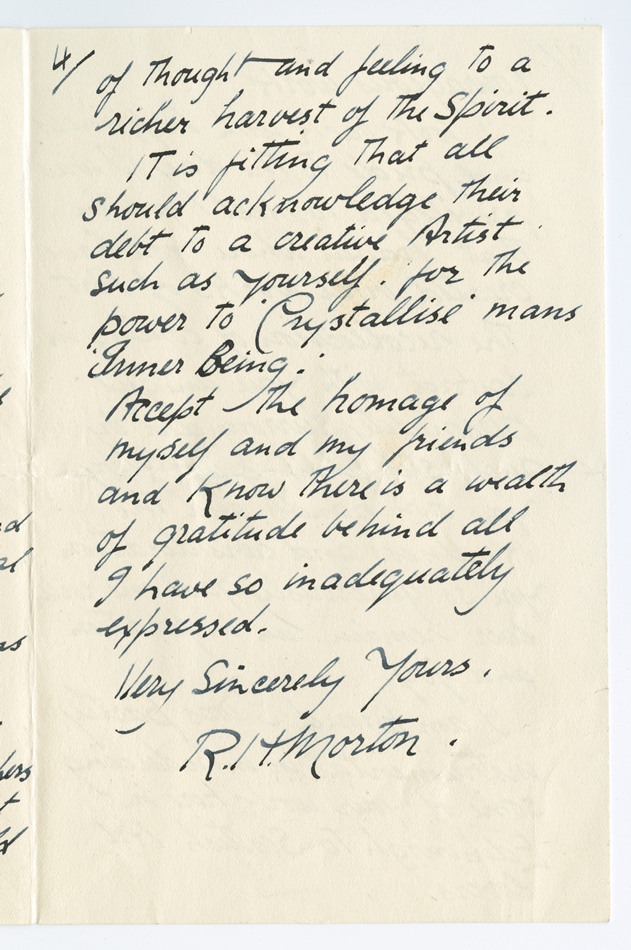 4/
of thought and feeling to a
richer harvest of the Spirit.
It is fitting that all
should acknowledge their
debt to a creative Artist
such as yourself. for the
power to 'Crystallise' mans
'Inner Being.'
Accept the homage of
myself and my friends
and Know there is a wealth
of gratitude behind all
I have so inadequately
expressed.
Very Sincerely Yours.
R.H. Morton.